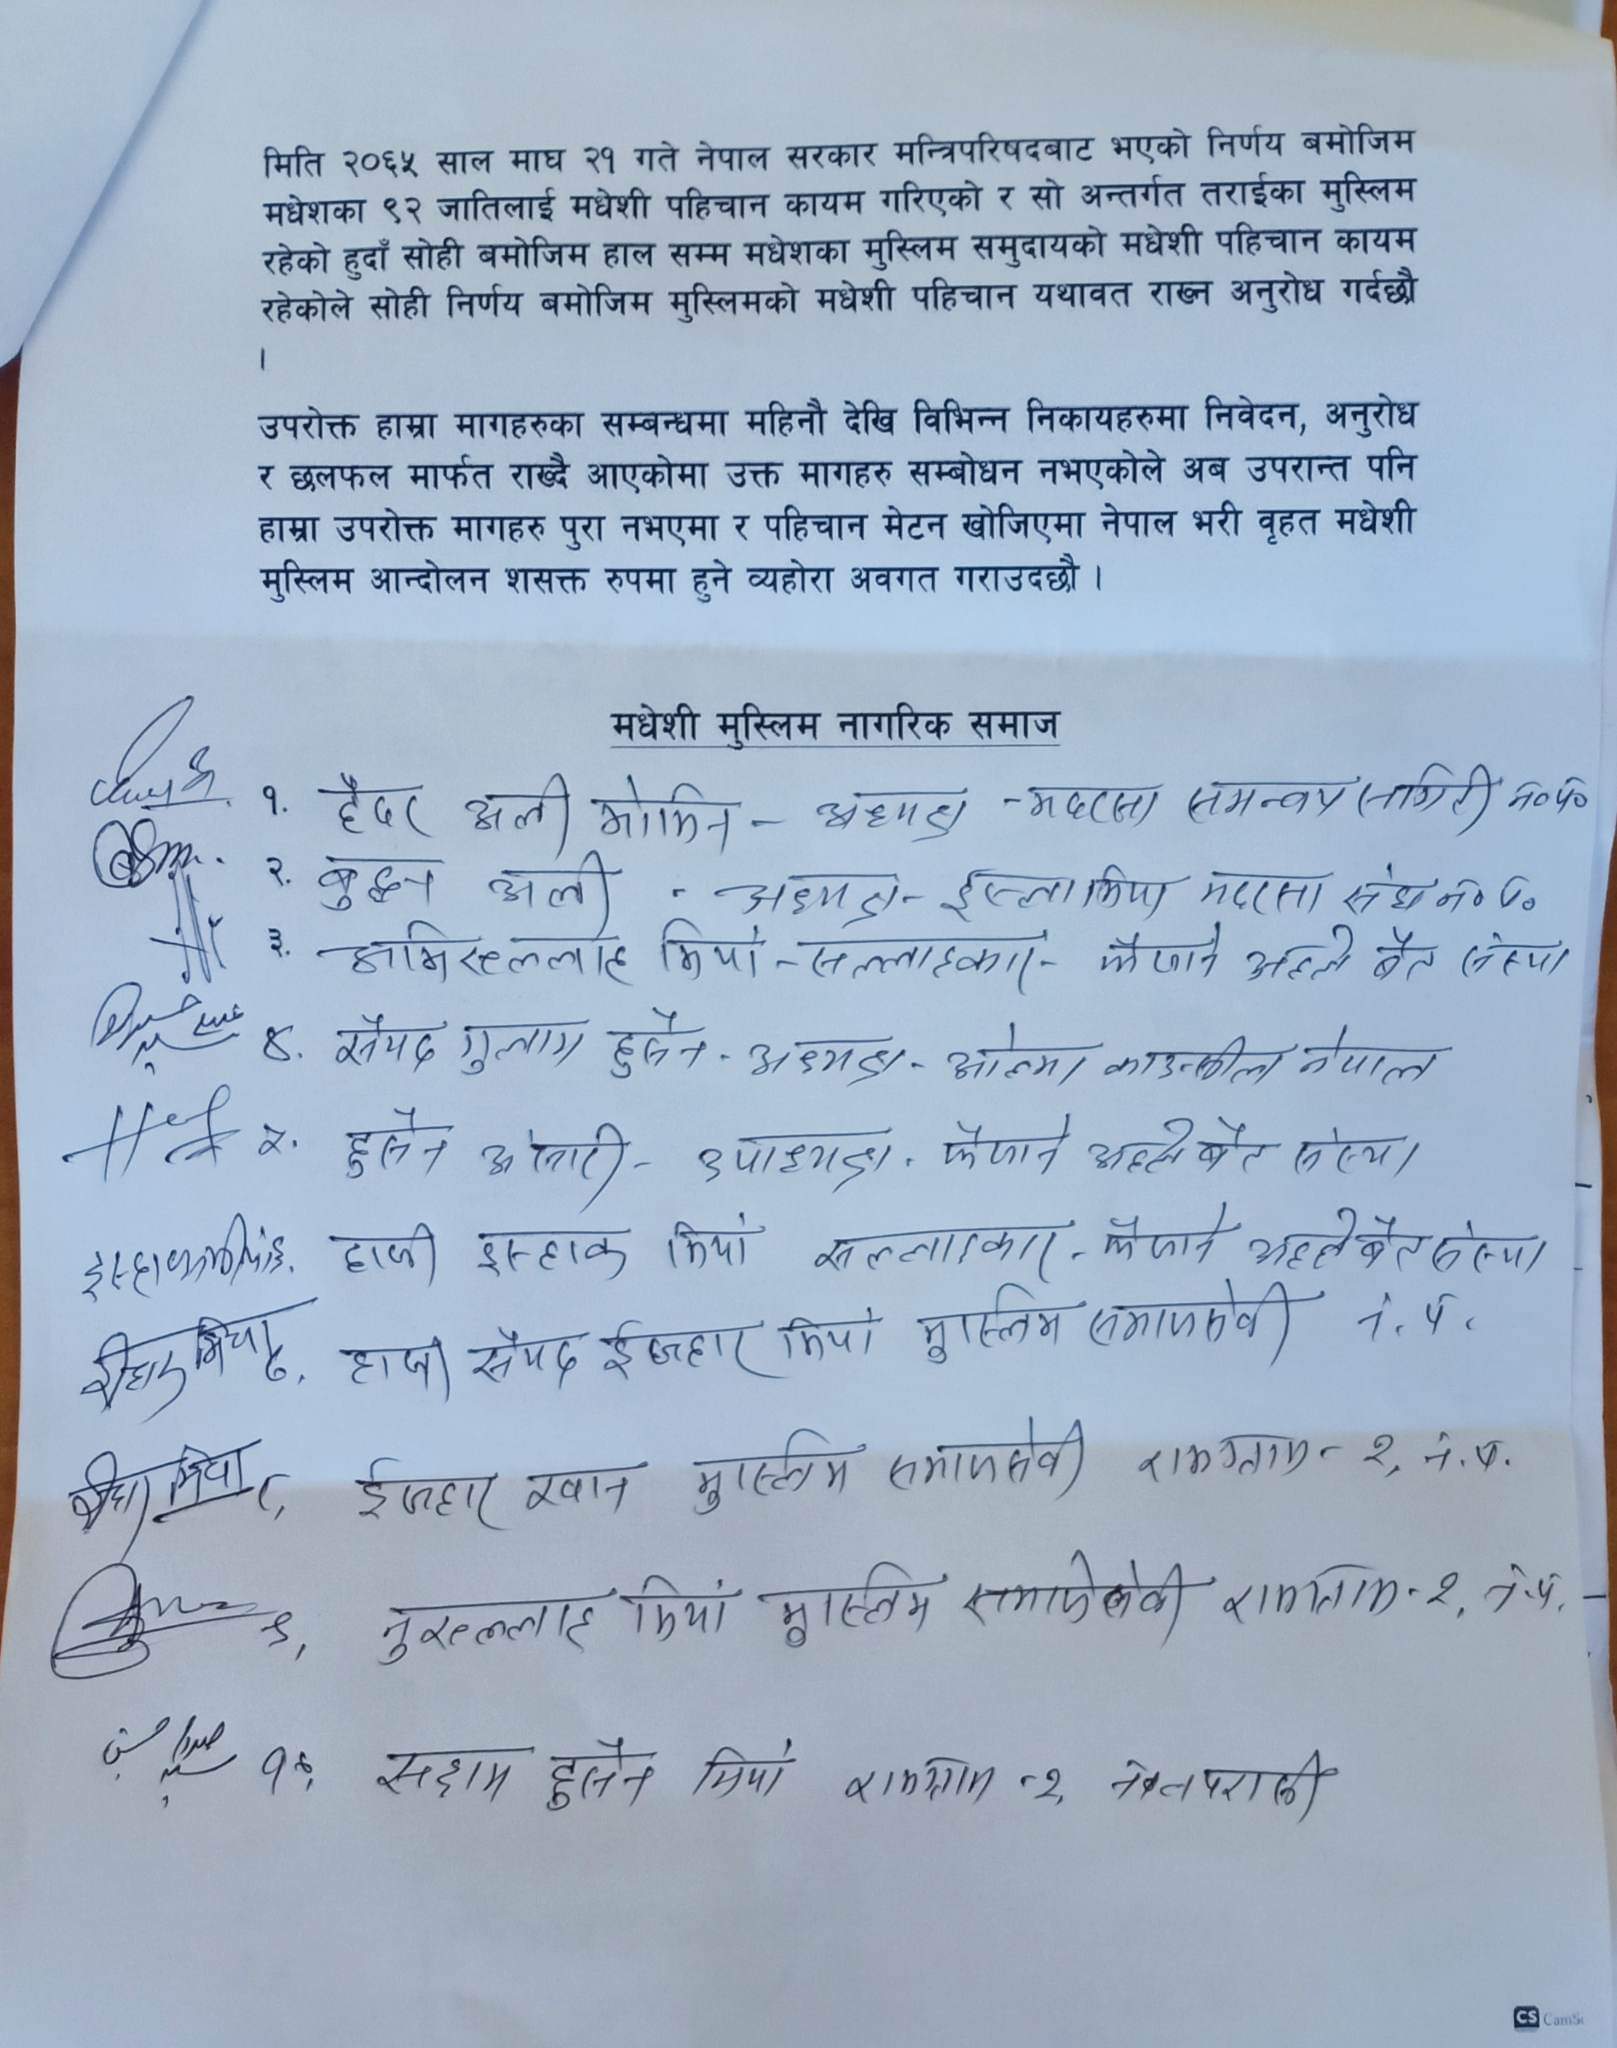 मिति २०६५ साल माघ २१ गते नेपाल सरकार मन्त्रिपरिषदबाट भएको निर्णय बमोजिम
मधेशका ९२ जातिलाई मधेशी पहिचान कायम गरिएको र सो अन्तर्गत तराईका मुस्लिम
रहेको हुदाँ सोही बमोजिम हाल सम्म मधेशका मुस्लिम समुदायको मधेशी पहिचान कायम
रहेकोले सोही निर्णय बमोजिम मुस्लिमको मधेशी पहिचान यथावत राख्न अनुरोध गर्दछौ
।
उपरोक्त हाम्रा मागहरुका सम्बन्धमा महिनौ देखि विभिन्न निकायहरुमा निवेदन, अनुरोध
र छलफल मार्फत राख्दै आएकोमा उक्त मागहरु सम्बोधन नभएकोले अब उपरान्त पनि
हाम्रा उपरोक्त मागहरु पुरा नभएमा र पहिचान मेटन खोजिएमा नेपाल भरी वृहत मधेशी
मुस्लिम आन्दोलन शसक्त रुपमा हुने व्यहोरा अवगत गराउदछौ ।
मधेशी मुस्लिम नागरिक समाज
१. हैदर अली मोमिन - अध्यक्ष - मदरसा समन्वय समिति न०प०
२. बुद्धन अली - अध्यक्ष - इस्लामिया मदरसा संघ न०प०
३. अमिरुल्लाह मियाँ - सल्लाहकार - फैजाने अहले बैत संस्था
४. सैयद गुलाम हुसैन - अध्यक्ष - ओलमा काउन्सील नेपाल
५. हुसैन अंसारी - उपाध्यक्ष - फैजाने अहले बैत संस्था
६. हाजी इस्हाक मियाँ सल्लाहकार - फैजाने अहले बैत संस्था
७. हाजी सैयद ईजहार मियाँ मुस्लिम समाजसेवी न.प.
८. ईजहार खान मुस्लिम समाजसेवी रामग्राम - २, न.प.
९. नुरुल्लाह मियाँ मुस्लिम समाजसेवी रामग्राम - २, न.प.
१०. सद्दाम हुसैन मियाँ रामग्राम - २, नवलपरासी
CS CamSc